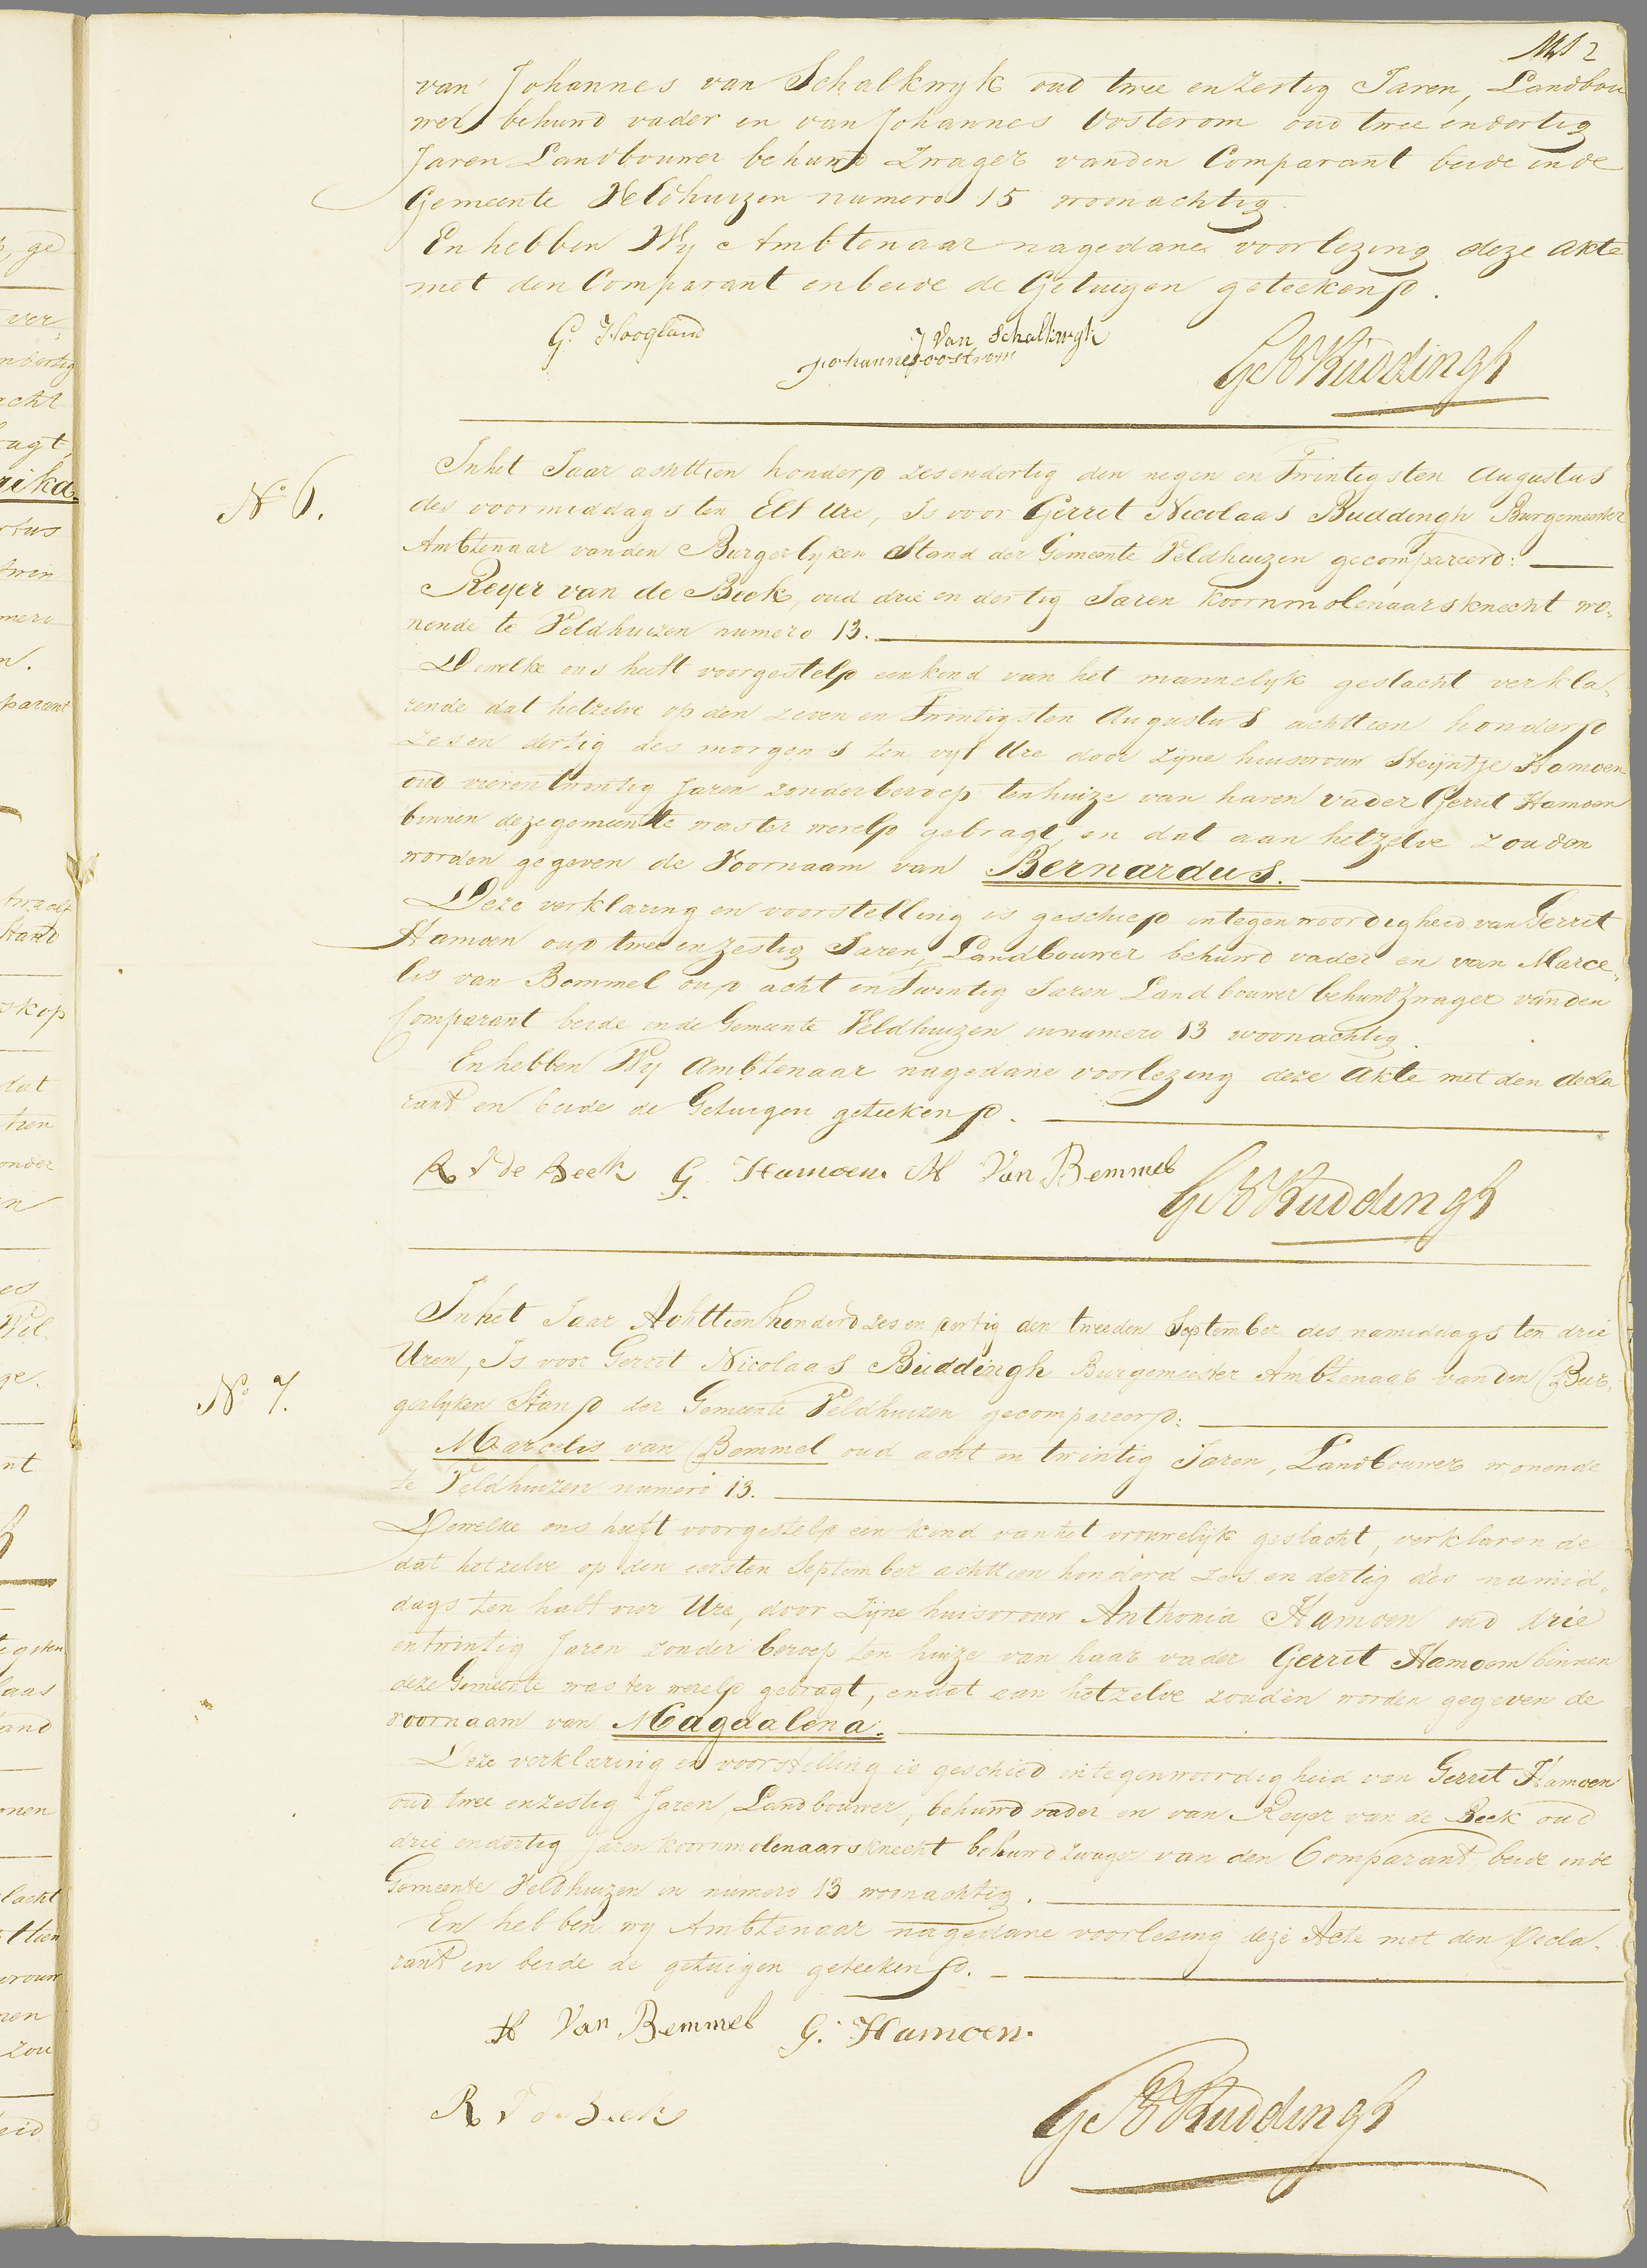 van Johannes van Schalkwyk oud twee en zestig Jaren, Landbou
wer behuwd vader en van Johannes Oosterom oud twee en dertig
Jaren Landbouwer behuwd Zwager van den Comparant beide in de
Gemeente Veldhuizen numero 15 woonachtig.
En hebben Wy Ambtenaar nagedane voorlezing deze akte
met den Comparant en beide de Getuigen geteekend.
G. Hoogland
J Van Schalkwyk
Johannes oostrom
GN Buddingh
No 6.
In het Jaar achttien honderd zes en dertig den negen en Twintigsten Augustus
des voormiddags ten Elf Ure, Is voor Gerret Nicolaas Buddingh Burgemeester
Ambtenaar van den Burgerlyken Stand der Gemeente Veldhuizen gecompareerd:
Reyer van de Beek, oud drie en dertig Jaren koornmolenaarsknecht wo-
nende te Veldhuizen numero 13.
Dewelke ons heeft voorgesteld een kind van het mannelyk geslacht verkla-
rende dat hetzelve op den zeven en Twintigsten Augustus achttien honderd
zes en dertig des morgens ten vyf Ure door zyne huisvrouw Steijntje Hamoen
oud vier en twintig Jaren zonder beroep ten huize van haren vader Gerrit Hamoen
binnen deze gemeente was ter wereld gebragt, en dat aan hetzelve zouden
worden gegeven de Voornaam van Bernardus.
Deze verklaring en voorstelling is geschied in tegenwoordigheid van Gerrit
Hamoen oud twee en zestig Jaren, Landbouwer behuwd vader en van Marce-
lis van Bommel oud acht en Twintig Jaren Landbouwer behuwd Zwager van den
Comparant beide in de Gemeente Veldhuizen in numero 13 woonachtig.
En hebben Wy Ambtenaar nagedane voorlezing deze Akte met den decla
rant en beide de Getuigen geteekend.
R V de Beek G. Hamoen. M Van Bemmel
GN Buddingh
No 7.
In het Jaar Achttien honderd zes en dertig den tweeden September des namiddags ten drie
Uren, Is voor Gerrit Nicolaas Buddingh Burgemeester Ambtenaar van den Bur-
gerlyken Stand der Gemeente Veldhuizen gecompareerd:
Marcelis van Bommel oud acht en twintig Jaren, Landbouwer wonende
te Veldhuizen numero 13.
Dewelke ons heeft voorgesteld een kind van het vrouwelyk geslacht, verklarende
dat hetzelve op den eersten September achttien honderd zes en dertig des namid-
dags ten half vier Ure, door Zyne huisvrouw Anthonia Hamoen oud drie
en twintig Jaren zonder beroep ten huize van haar vader Gerrit Hamoen binnen
deze Gemeente was ter wereld gebragt, en dat aan hetzelve zouden worden gegeven de
voornaam van Magdalena.
Deze verklaring en voorstelling is geschied in tegenwoordigheid van Gerrit Hamoen
oud twee en zestig Jaren, Landbouwer, behuwd vader en van Reyer van de Beek oud
drie en dertig Jaren koornmolenaarsknecht behuwd Zwager van den Comparant, beide in de
Gemeente Veldhuizen in numero 13 woonachtig.
En hebben wy Ambtenaar nagedane voorlezing deze Acte met den Decla-
rant en beide de getuigen geteekend.
M Van Bemmel G. Hamoen.
R V de Beek
GN Buddingh